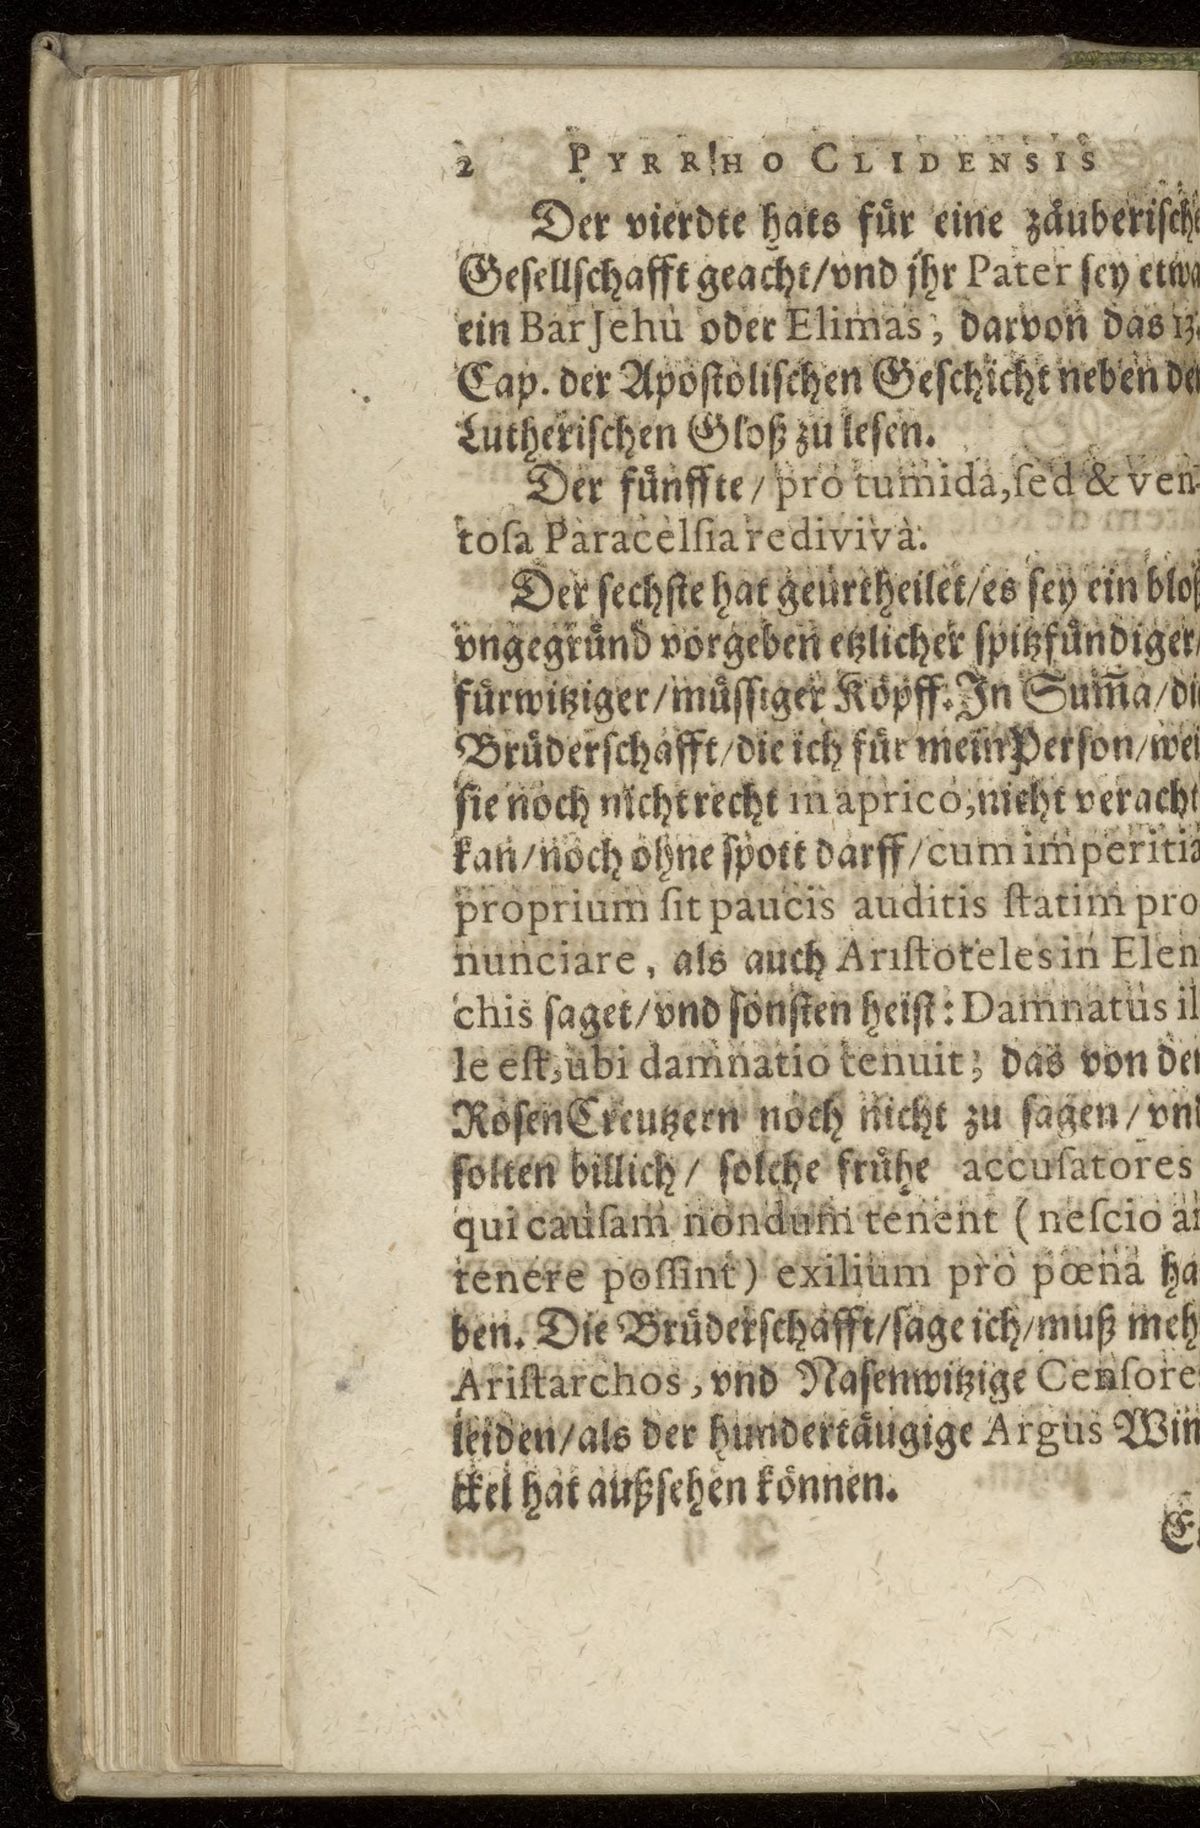 2 PYRRHO CLIDENSIS
Der vierdte hats fuͤr eine zaͤuberiſche
Geſellſchafft geacht/vnd jhr Pater ſey etwa
ein BarJehu oder Elimas, darvon das 13.
Cap. der Apoſtoliſchen Geſchicht neben der
Lutheriſchen Gloß zu leſen.
Der fuͤnffte/ pro tumida, ſed & ven-
toſa Paracelſia rediviva.
Der ſechſte hat geurtheilet/es ſey ein bloß
vngegruͤnd vorgeben etzlicher ſpitzfuͤndiger/
fuͤrwitziger/muͤſſiger Koͤpff. In Sum̃a/di
Bruͤderſchafft/die ich fuͤr mein Perſon/wei
ſie noch nicht recht in aprico, nicht veracht
kan/noch ohne ſpott darff/cum imperitiæ
proprium ſit paucis auditis ſtatim pro
nunciare, als auch Ariſtoteles in Elen
chis ſaget/vnd ſonſten heiſt: Damnatus il
le eſt, ubi damnatio tenuit; das von den
RoſenCreutzern noch nicht zu ſagen/vnd
ſolten billich/ ſolche fruͤhe accuſatores
qui cauſam nondum tenent (neſcio an
tenere poſſint) exilium pro pœna ha
ben. Die Bruͤderſchafft/ſage ich/muß meh
Ariſtarchos, vnd Naſenwitzige Cenſores
leiden/als der hundertaͤugige Argus Win
ckel hat außſehen koͤnnen.